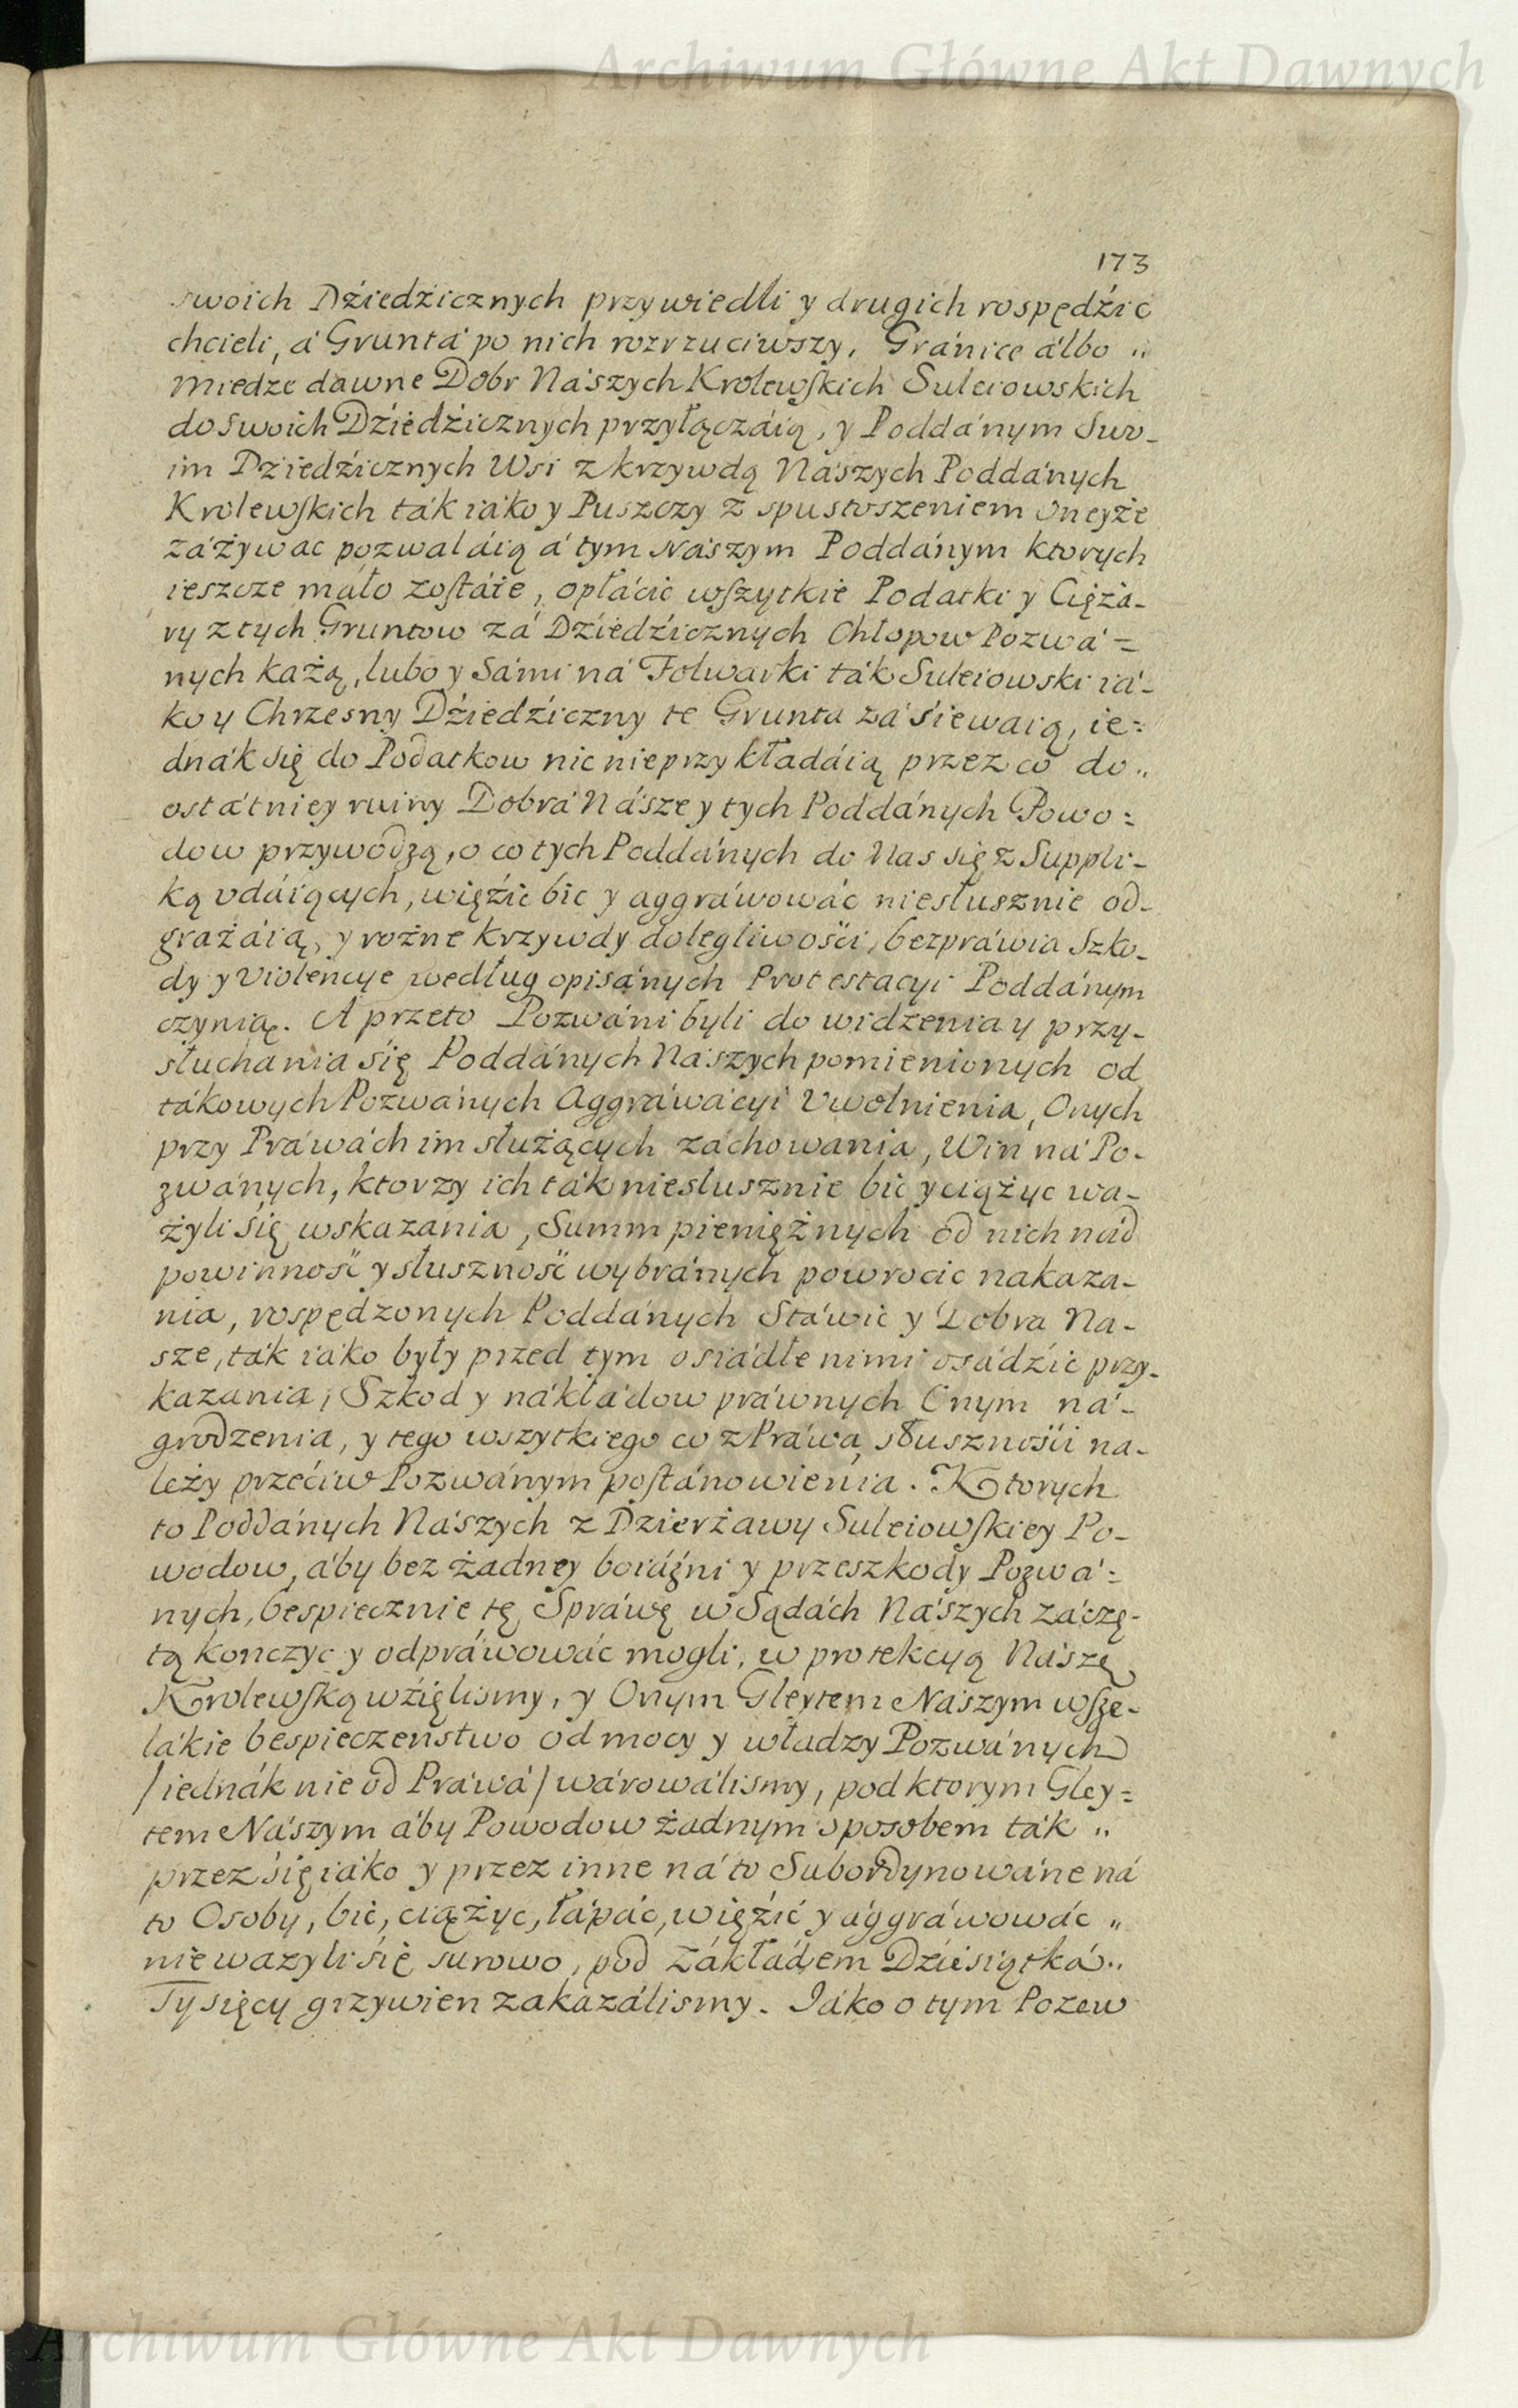 Archiwum Główne Akt Dawnych
173
swoich Dźiedźicznych przywiedli y drugich rospędźić
chcieli, á Gruntá po nich rozrzuciwszy, Gránice álbo „
Miedze dawne Dobr Nászych Krolewſkich Suleiowskich
do swoich Dźiedźicznych przyłączáią, y Poddánym Swo-
im Dziedźicznych Wsi z krzywdą Nászych Poddánych
Krolewſkich ták iáko y Puszczy z spustoszeniem oneyże
záżywac pozwaláią á tym Nászym Poddánym ktorych
ieszcze máło zoſtáie, opłácić wſzytkie Podatki y Ciężá-
ry z tych Gruntow zá Dźiedźicznych Chłopow Pozwá=
nych każą, lubo y Sámi ná Folwarki ták Suleiowski iá-
ko y Chrzesny Dźiedźiczny te Grunta záśiewaią, ie=
dnák się do Podatkow nic nieprzykłádáią przez co do „
ostátniey ruiny Dobrá Násze y tych Poddánych Powo=
dow przywodzą, o co tych Poddánych do Nas się z Suppli-
ką udáiących, więźić bic y aggráwowáć niesłusznie od-
grażáią, y rożne krzywdy dolegliwośći, bezpráwia Szko-
dy y violencye według opisánych Protestacyi Poddánym
czynią. A przeto Pozwáni byli do widzenia y przy-
słuchania się Poddánych Nászych pomienionych od
tákowych Pozwánych Aggráwácyi Uwolnienia, Onych
przy Práwách im służących záchowania, Win ná Po-
zwánych, ktorzy ich ták niesłusznie bić y ciążyc wa-
żyli się wskazania, Summ pieniężnych od nich nád
powinność y słuszność wybránych powrocic nakaza-
nia, rospędzonych Poddánych Stáwić y Dobra Na-
sze, ták iáko były przed tym osiádłe nimi osádźić przy-
kazania, Szkod y nákłádow práwnych Onym ná-
grodzenia, y tego wszytkiego co z Práwa słusznośći na-
leży przećiw Pozwánym poſtánowienia. Ktorych
to Poddánych Nászych z Dzierżawy Suleiowſkiey Po-
wodow, áby bez żadney boiáźni y przeszkody Pozwá=
nych, bespiecznie tę Spráwę w Sądách Nászych záczę-
tą konczyc y odpráwowáć mogli, w protekcyą Nászę
Krolewſką wźięlismy, y Onym Gleytem Nászym wſze-
lákie bespieczeństwo od mocy y władzy Pozwánych
/iednák nie od Práwá/ wárowálismy, pod ktorym Gley=
tem Nászym áby Powodow żadnym sposobem ták „
przez się iáko y przez inne ná to Subordynowáne ná
to Osoby, bić, ciążyc, łápáć, więźić y ággráwowáć „
nie wazyli się surowo, pod zákłádem Dźiesiątká „
Tysięcy grzywien zakazálismy. Iáko o tym Pozew
Archiwum Główne Akt Dawnych